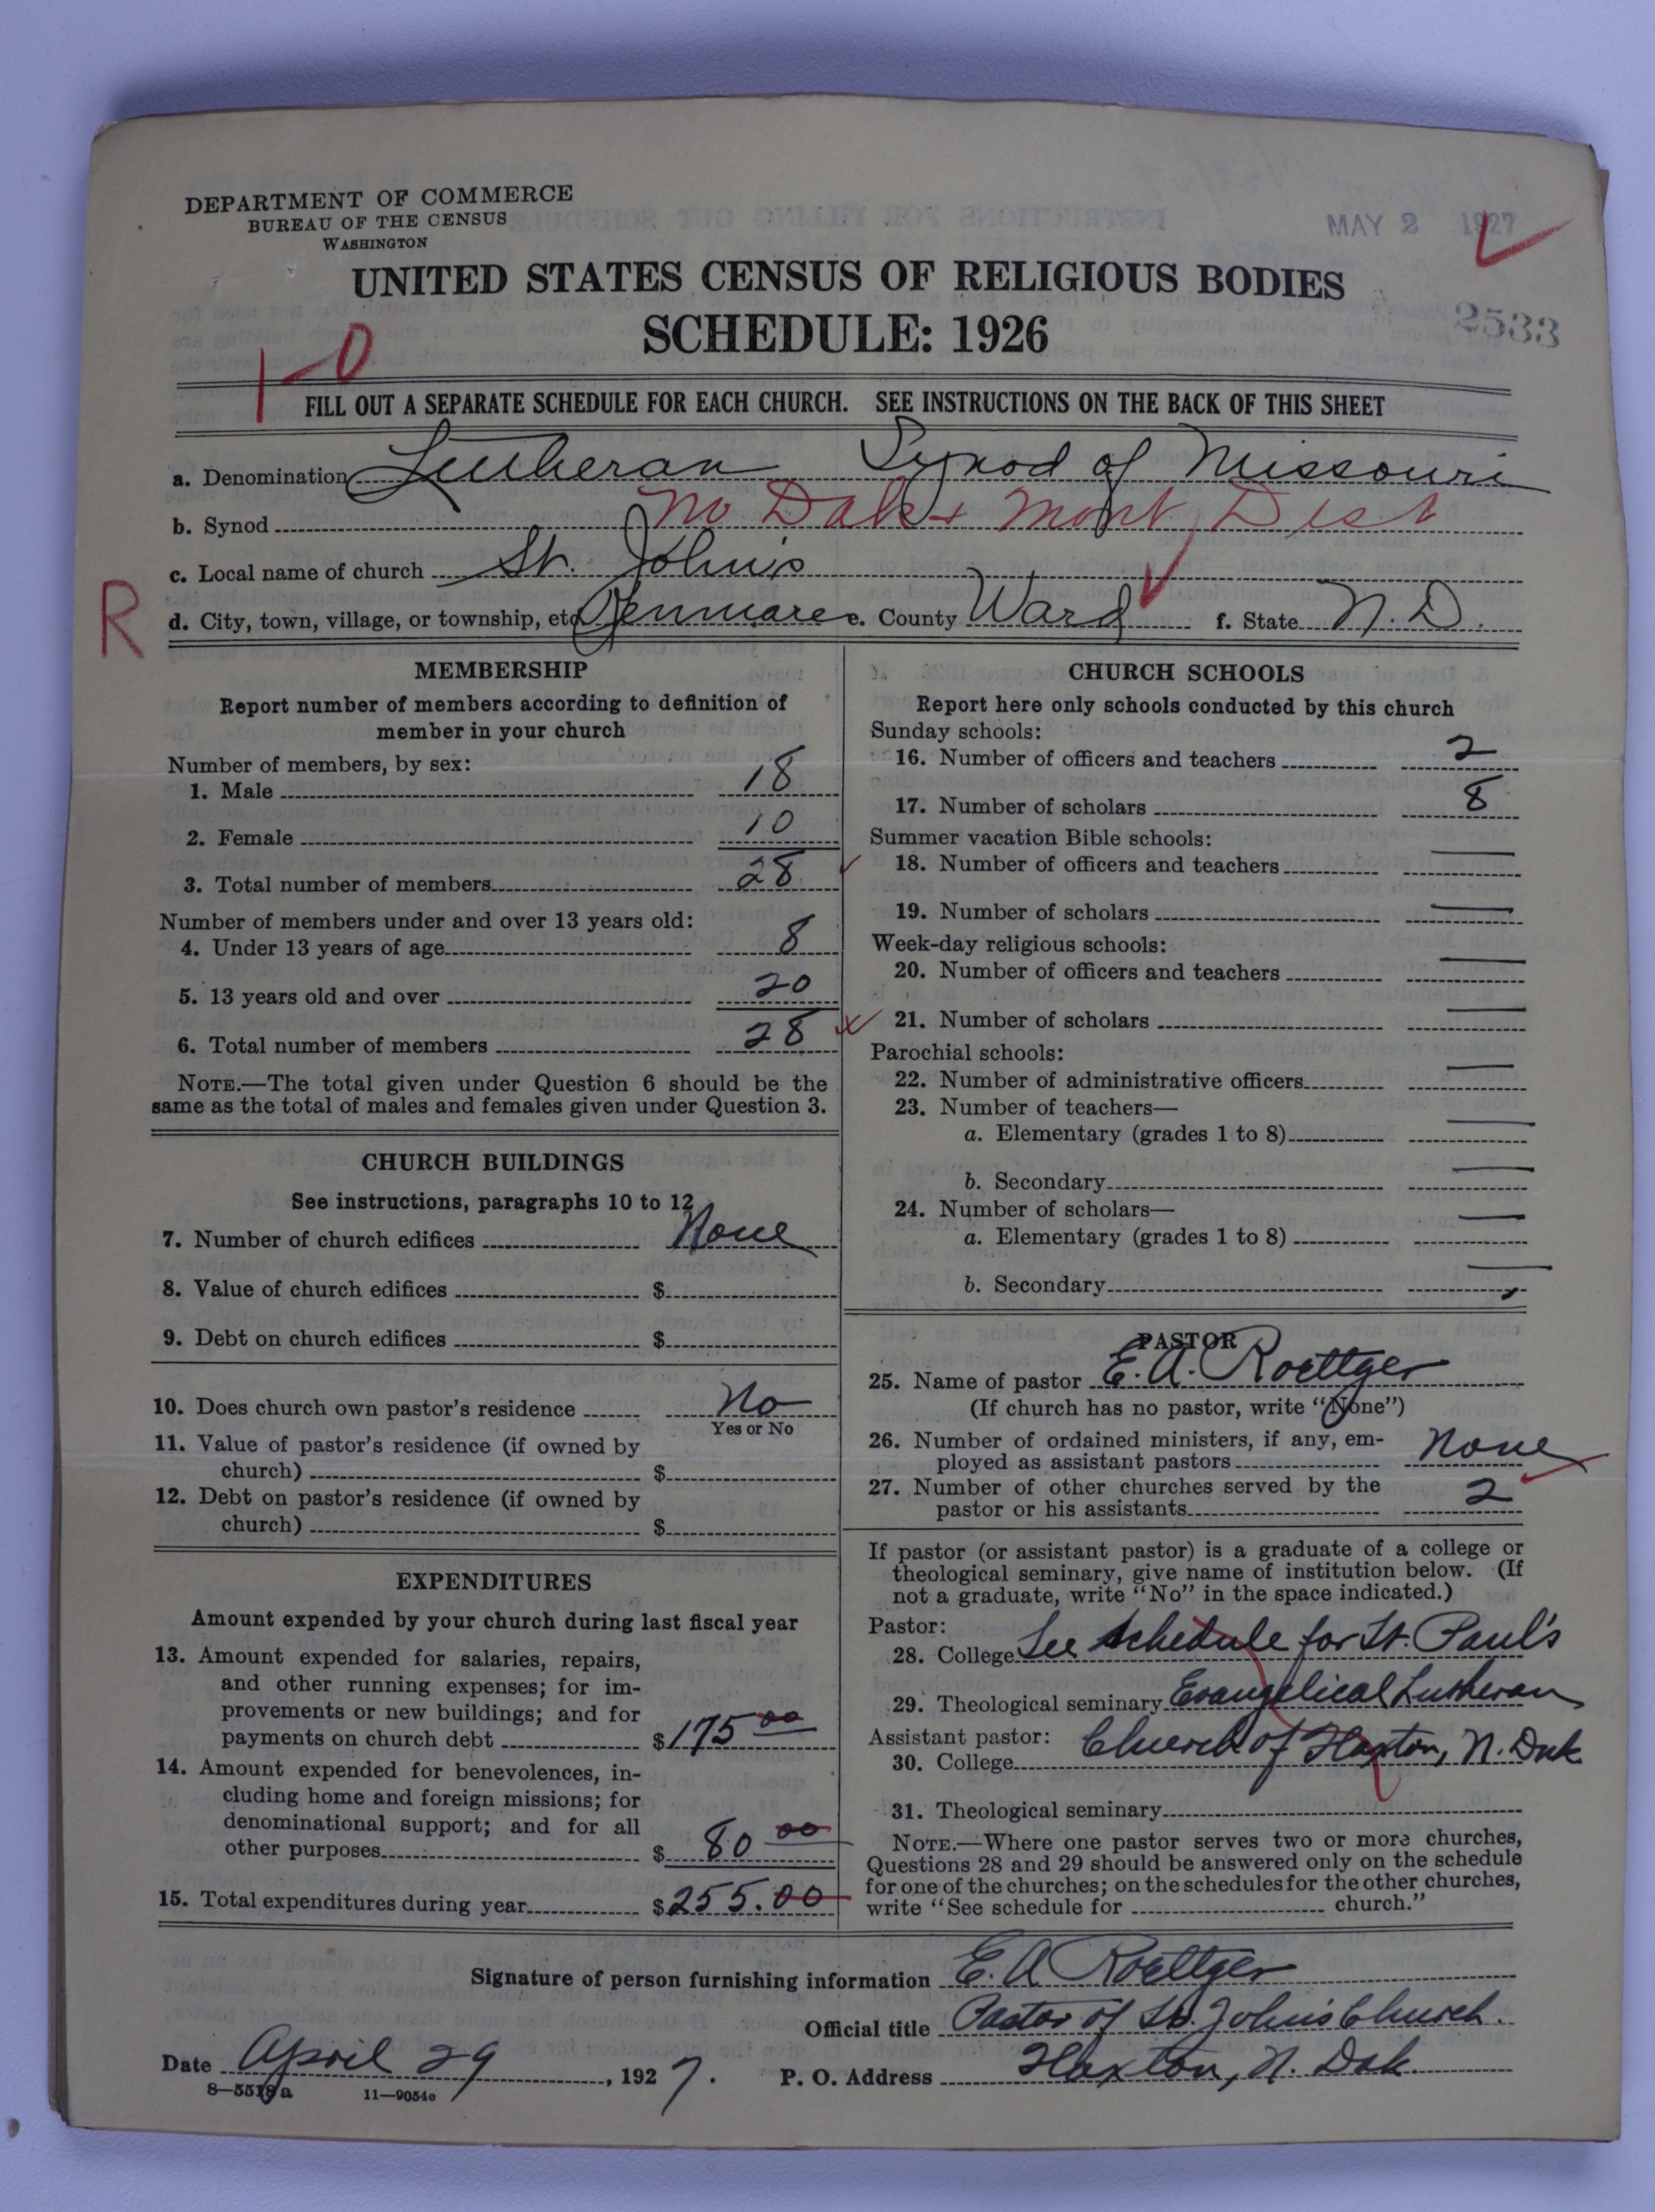 DEPARTMENT OF COMMERCE
BUREAU OF THE CENSUS
WASHINGTON
MAY 2 1927
UNITED STATES CENSUS OF RELIGIOUS BODIES
SCHEDULE: 1926
2533
1-0
FILL OUT A SEPARATE SCHEDULE FOR EACH CHURCH. SEE INSTRUCTIONS ON THE BACK OF THIS SHEET
a. Denomination Lutheran Synod of Missouri
b. Synod No Dak + Mont Dist
c. Local name of church St. John's
R
d. City, town, village, or township, etc. Kenmare e. County Ward f. State N. D.
MEMBERSHIP
Report number of members according to definition of
member in your church
Number of members, by sex:
1. Male 18
2. Female 10
3. Total number of members 28
Number of members under and over 13 years old:
4. Under 13 years of age 8
5. 13 years old and over 20
6. Total number of members 28
NOTE.—The total given under Question 6 should be the
same as the total of males and females given under Question 3.
CHURCH BUILDINGS
See instructions, paragraphs 10 to 12
7. Number of church edifices None
8. Value of church edifices $
9. Debt on church edifices $
10. Does church own pastor's residence No
Yes or No
11. Value of pastor's residence (if owned by
church) $
12. Debt on pastor's residence (if owned by
church) $
EXPENDITURES
Amount expended by your church during last fiscal year
13. Amount expended for salaries, repairs,
and other running expenses; for im-
provements or new buildings; and for
payments on church debt $175 00
14. Amount expended for benevolences, in-
cluding home and foreign missions; for
denominational support; and for all
other purposes $ 80 00
15. Total expenditures during year $255.00
CHURCH SCHOOLS
Report here only schools conducted by this church
Sunday schools:
16. Number of officers and teachers 2
17. Number of scholars 8
Summer vacation Bible schools:
18. Number of officers and teachers —
19. Number of scholars —
Week-day religious schools:
20. Number of officers and teachers —
21. Number of scholars —
Parochial schools:
22. Number of administrative officers —
23. Number of teachers—
a. Elementary (grades 1 to 8) —
b. Secondary —
24. Number of scholars—
a. Elementary (grades 1 to 8) —
b. Secondary —
PASTOR
25. Name of pastor E. A. Roettger
(If church has no pastor, write "None")
26. Number of ordained ministers, if any, em-
ployed as assistant pastors None
27. Number of other churches served by the
pastor or his assistants 2
If pastor (or assistant pastor) is a graduate of a college or
theological seminary, give name of institution below. (If
not a graduate, write "No" in the space indicated.)
Pastor:
28. College See schedule for St. Paul's
29. Theological seminary Evangelical Lutheran
Assistant pastor: Church of Haxton, N. Dak
30. College
31. Theological seminary
NOTE.—Where one pastor serves two or more churches,
Questions 28 and 29 should be answered only on the schedule
for one of the churches; on the schedules for the other churches,
write "See schedule for church."
Signature of person furnishing information E. A Roettger
Official title Pastor of St. John's Church.
Date April 29, 1927. P. O. Address Flaxton, N. Dak.
8—5518a 11—9054c